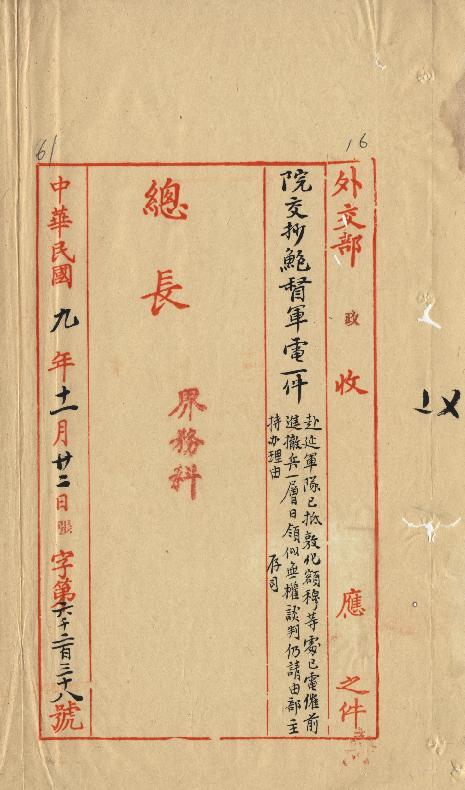 16
61
外交部 政 收 應 之件
院交抄鮑督軍電一件
赴延軍隊已抵敦化額穆等處已電催前
進撤兵一層日領似無權談判仍請由部主
持办理由
存司
總長
界務科
中華民國九年十一月廿二日 張 字第六千二百三十八號